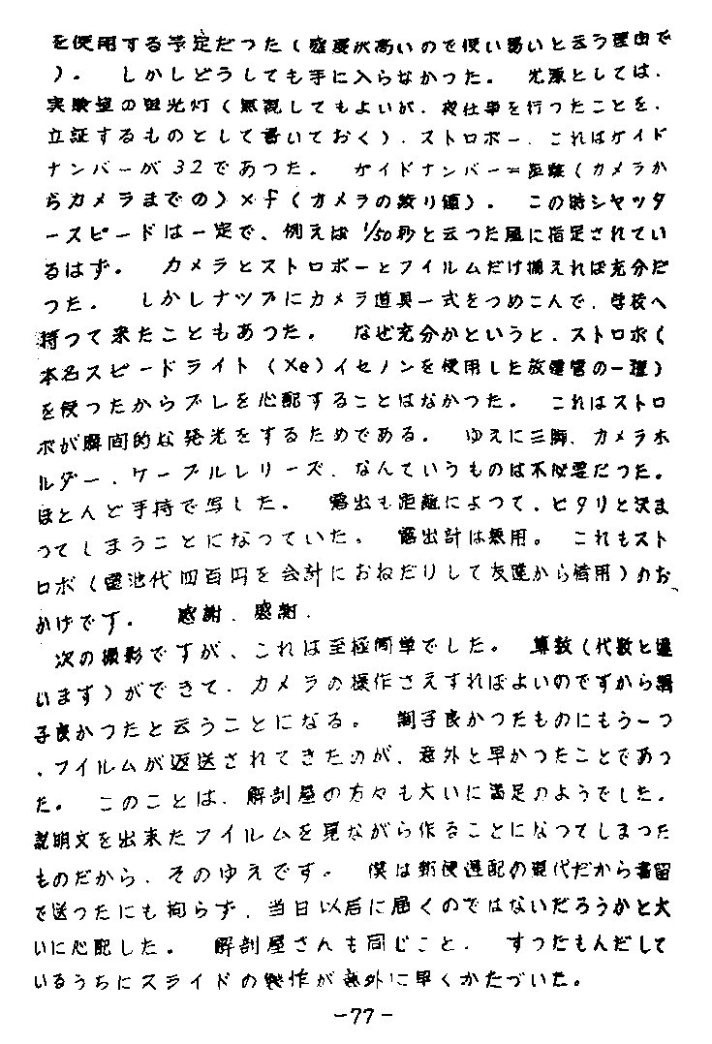 を使用する予定だつた(感度が高いので使い易いと云う理由で
)。 しかしどうしても手に入らなかつた。 光源としては、
実験室の螢光灯(無視してもよいが、夜仕事を行つたことを、
立証するものとして書いておく)、ストロボー、これはゲイド
ナンバーが32であつた。 ゲイドナンバー=距離(カメラか
らカメラまでの)×f(カメラの絞り値)。 この時シヤツタ
ースピードは一定で、例えば1/50秒と云つた風に指定されてい
るはず。 カメラとストロボーとフイルムだけ揃えれば充分だ
つた。 しかしナツプにカメラ道具一式をつめこんで、学校へ
持つて来たこともあつた。 なぜ充分かというと、ストロボ(
本名スピードライト(Xe)イセノンを使用した放電管の一種)
を使つたからブレを心配することはなかつた。 これはストロ
ボが瞬間的な発光をするためである。 ゆえに三脚、カメラホ
ルダー、ケーブルレリーズ、なんていうものは不必要だつた。
ほとんど手持で写した。 露出も距離によつて、ピタリと決ま
つてしまうことになつていた。 露出計は無用。 これもスト
ロボ(電池代四百円を会計におねだりして友達から借用)のお
かげです。 感謝、感謝、
次の撮影ですが、これは至極簡単でした。 算数(代数と違
います)ができて、カメラの操作さえすればよいのですから調
子良かつたと云うことになる。 調子良かつたものにもう一つ
、フイルムが返送されてきたのが、意外と早かつたことであつ
た。 このことは、解剖屋の方々も大いに満足のようでした。
説明文を出来たフイルムを見ながら作ることになつてしまつた
ものだから、そのゆえです。 僕は郵便遅配の現代だから書留
で送つたにも拘らず、当日以后に届くのではないだろうかと大
いに心配した。 解剖屋さんも同じこと、 すつたもんだして
いるうちにスライドの製作が意外に早くかたづいた。
-77-